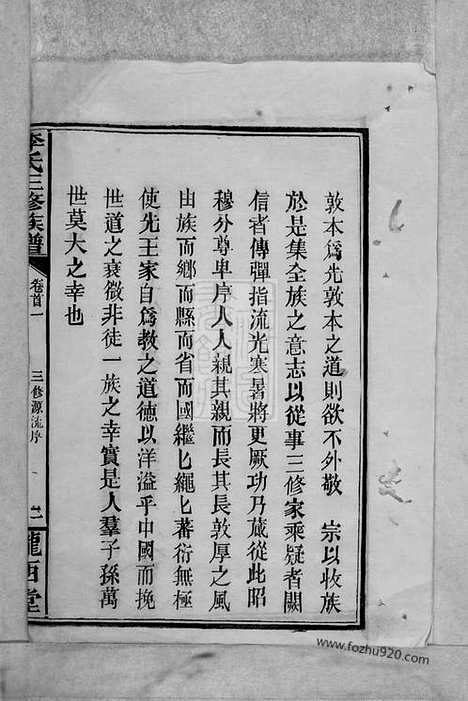 敦本爲先敦本之道則欲不外敬 宗以收族
於是集全族之意志以從事三修家乘疑者闕
信者傳彈指流光寒暑將更厥功乃蕆從此昭
穆分尊卑序人人親其親而長其長敦厚之風
由族而鄉而縣而省而國繼匕繩匕蕃衍無極
使先王家自爲教之道德以洋溢乎中國而挽
世道之衰微非徒一族之幸實是人羣子孫萬
世莫大之幸也
李氏三修族譜
卷首一
三修源流序
隴西堂
www.fozhu920.com